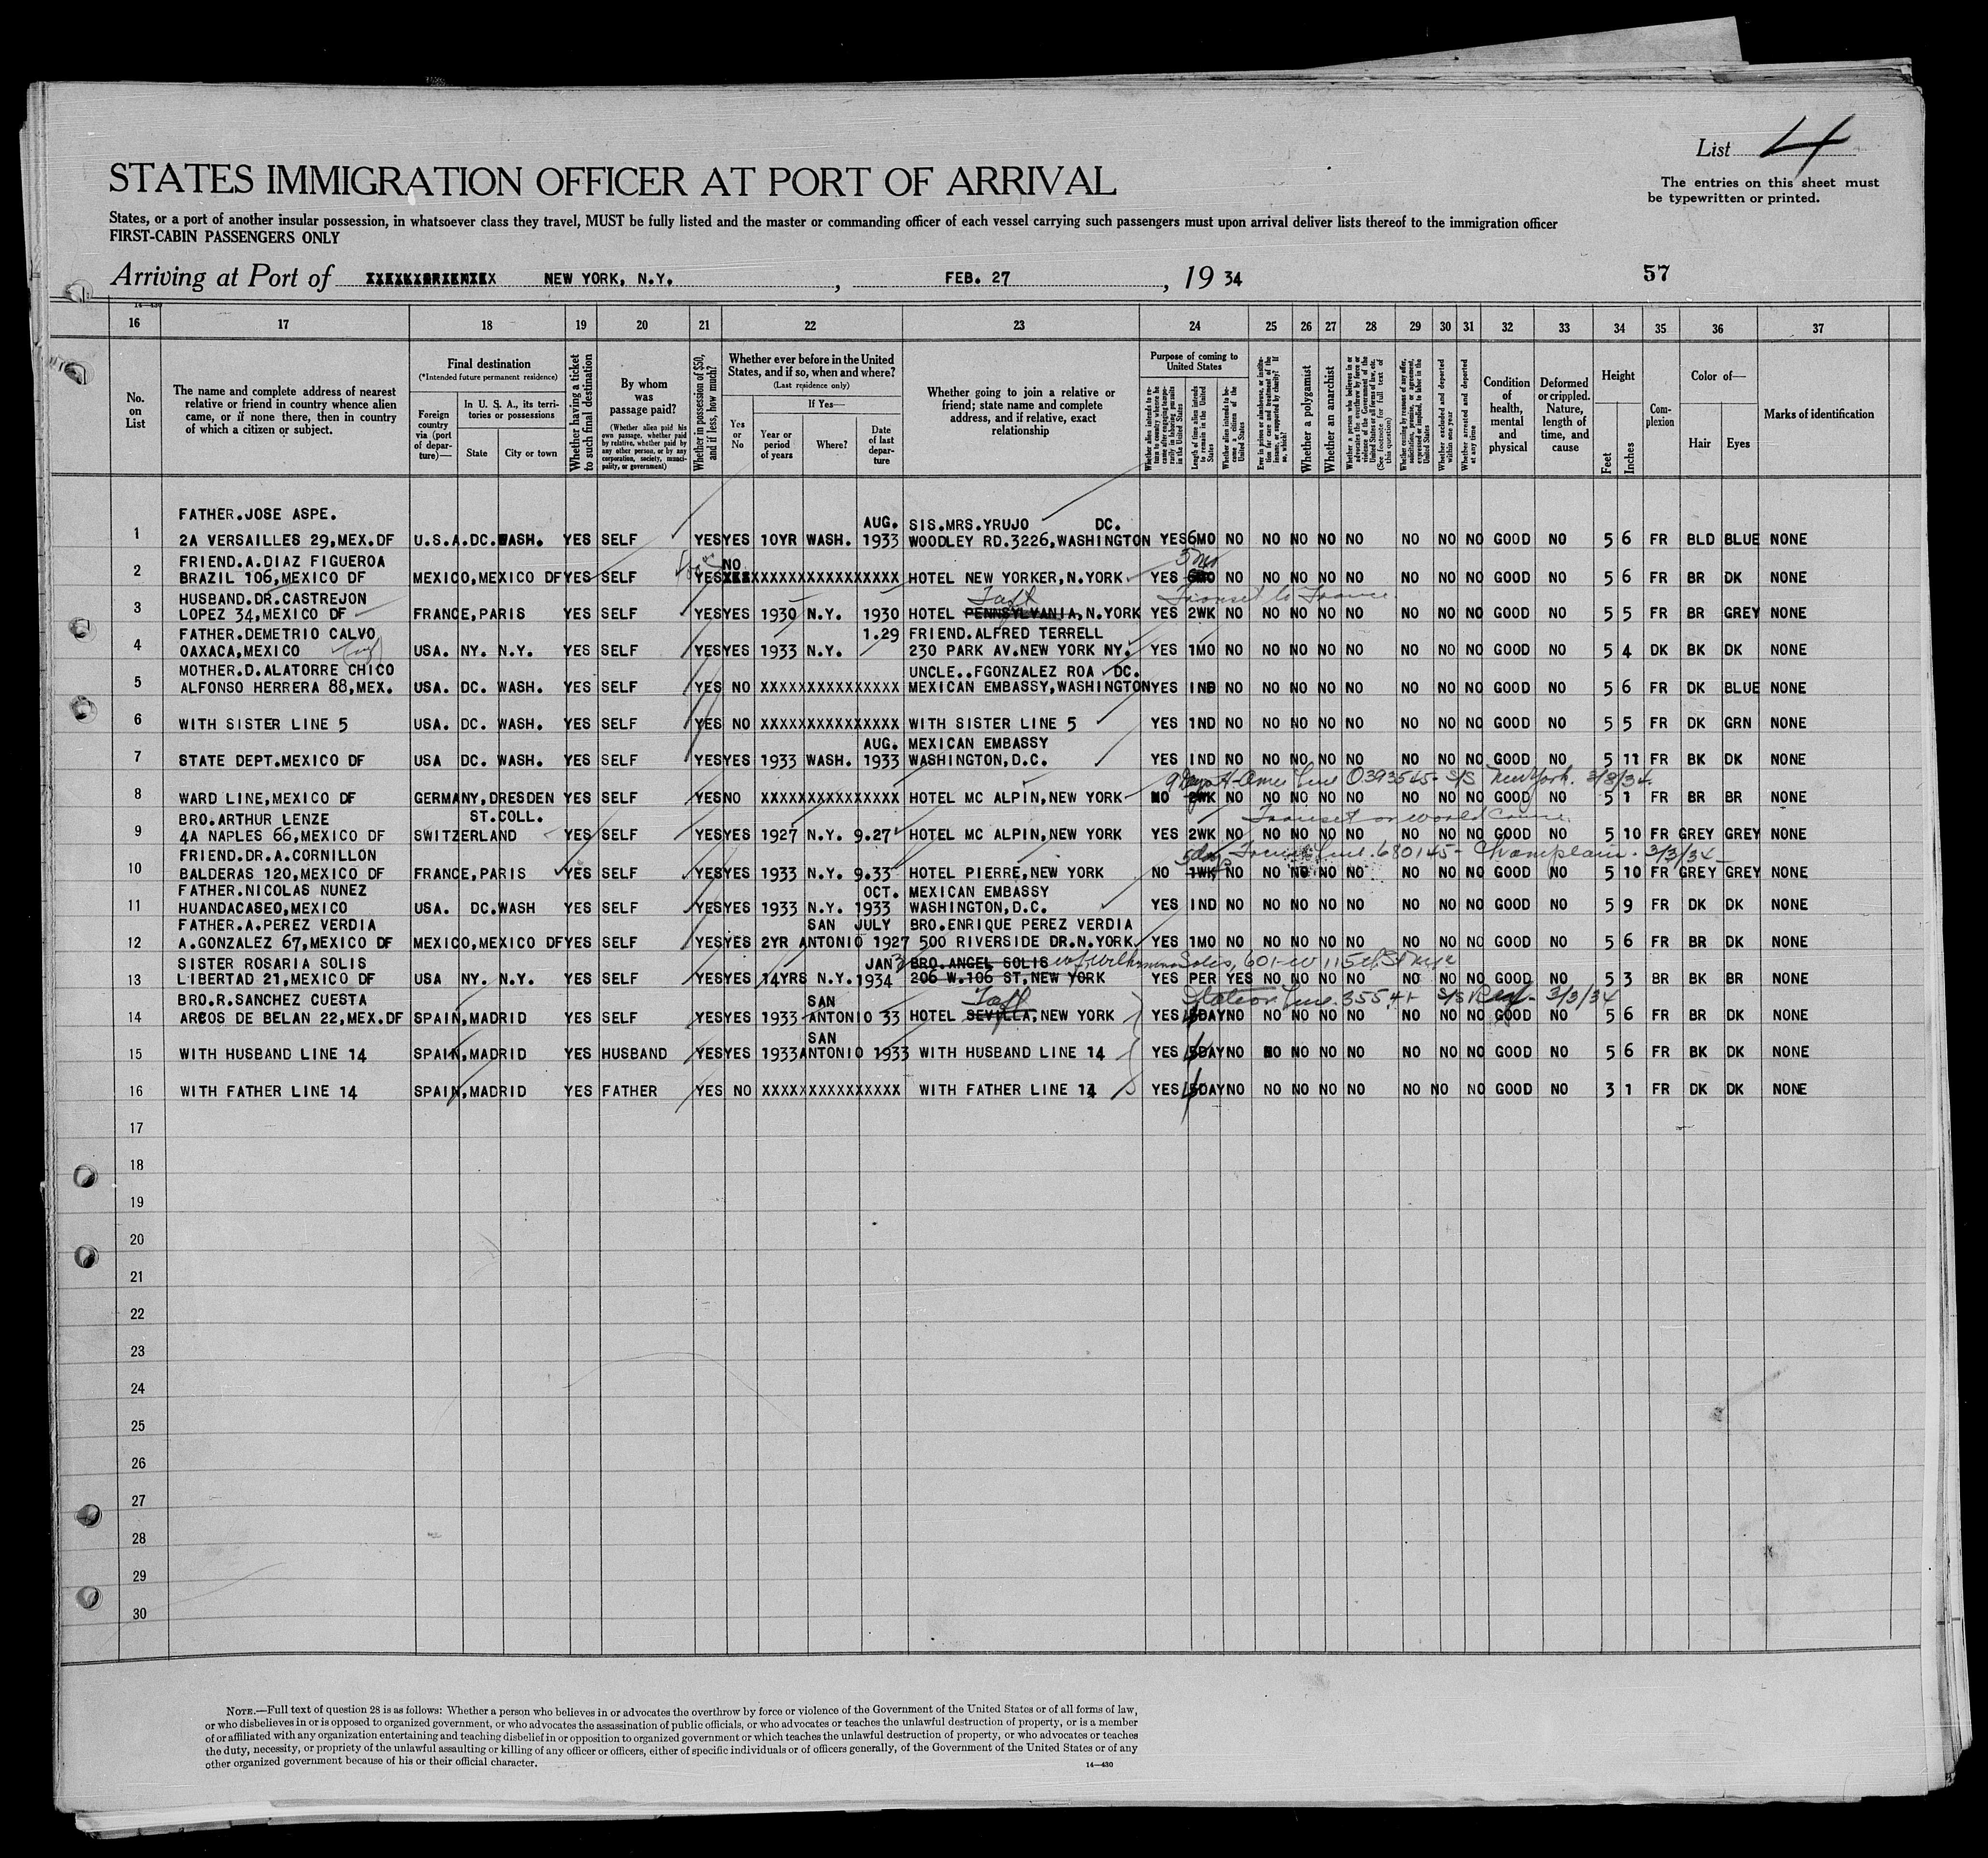 List 4
STATES IMMIGRATION OFFICER AT PORT OF ARRIVAL
The entries on this sheet must
be typewritten or printed.
States, or a port of another insular possession, in whatsoever class they travel, MUST be fully listed and the master or commanding officer of each vessel carrying such passengers must upon arrival deliver lists thereof to the immigration officer
FIRST-CABIN PASSENGERS ONLY
Arriving at Port of NEW YORK, N.Y. , FEB. 27 , 19 34
57
14—430
16 17 18 19 20 21 22 23 24 25 26 27 28 29 30 31 32 33 34 35 36 37
No. on List
The name and complete address of nearest relative or friend in country whence alien came, or if none there, then in country of which a citizen or subject.
Final destination
(*Intended future permanent residence)
Foreign country via (port of departure)—
In U. S. A., its territories or possessions
State
City or town
Whether having a ticket to such final destination
By whom was passage paid?
(Whether alien paid his own passage, whether paid by relative, whether paid by any other person, or by any corporation, society, municipality, or government)
Whether in possession of $50, and if less, how much?
Whether ever before in the United States, and if so, when and where?
(Last residence only)
Yes or No
If Yes—
Year or period of years
Where?
Date of last departure
Whether going to join a relative or friend; state name and complete address, and if relative, exact relationship
Purpose of coming to United States
Length of time alien intends to remain in the United States
Whether alien intends to become a citizen of the United States
Whether a polygamist
Whether an anarchist
(See footnote for full text of this question)
Whether excluded and deported within one year
Whether arrested and deported at any time
Condition of health, mental and physical
Deformed or crippled. Nature, length of time, and cause
Height
Feet
Inches
Complexion
Color of—
Hair
Eyes
Marks of identification
FATHER.JOSE ASPE. AUG. SIS.MRS.YRUJO DC.
1 2A VERSAILLES 29,MEX.DF U.S.A.DC.WASH. YES SELF YES YES 10YR WASH. 1933 WOODLEY RD.3226,WASHINGTON YES 6MO NO NO NO NO NO NO NO NO GOOD NO 5 6 FR BLD BLUE NONE
FRIEND.A.DIAZ FIGUEROA NO 5 mo
2 BRAZIL 106,MEXICO DF MEXICO,MEXICO DF YES SELF YES XXXXXXXXXXXXXXXXXX HOTEL NEW YORKER,N.YORK YES 6MO NO NO NO NO NO NO NO NO GOOD NO 5 6 FR BR DK NONE
HUSBAND.DR.CASTREJON Taft Transit to France
3 LOPEZ 34,MEXICO DF FRANCE,PARIS YES SELF YES YES 1930 N.Y. 1930 HOTEL PENNSYLVANIA,N.YORK YES 2WK NO NO NO NO NO NO NO NO GOOD NO 5 5 FR BR GREY NONE
FATHER.DEMETRIO CALVO 1.29 FRIEND.ALFRED TERRELL
4 OAXACA,MEXICO USA. NY. N.Y. YES SELF YES YES 1933 N.Y. 230 PARK AV.NEW YORK NY. YES 1MO NO NO NO NO NO NO NO NO GOOD NO 5 4 DK BK DK NONE
MOTHER.D.ALATORRE CHICO UNCLE..FGONZALEZ ROA DC.
5 ALFONSO HERRERA 88,MEX. USA. DC. WASH. YES SELF YES NO XXXXXXXXXXXXXXXX MEXICAN EMBASSY,WASHINGTON YES IND NO NO NO NO NO NO NO NO GOOD NO 5 6 FR DK BLUE NONE
6 WITH SISTER LINE 5 USA. DC. WASH. YES SELF YES NO XXXXXXXXXXXXXXXX WITH SISTER LINE 5 YES 1ND NO NO NO NO NO NO NO NO GOOD NO 5 5 FR DK GRN NONE
AUG. MEXICAN EMBASSY
7 STATE DEPT.MEXICO DF USA DC. WASH. YES SELF YES YES 1933 WASH. 1933 WASHINGTON,D.C. YES IND NO NO NO NO NO NO NO NO GOOD NO 5 11 FR BK DK NONE
9 days H. Amer Line 0393545- S/S New York. 3/8/34
8 WARD LINE,MEXICO DF GERMANY,DRESDEN YES SELF YES NO XXXXXXXXXXXXXXXX HOTEL MC ALPIN,NEW YORK NO 2WK NO NO NO NO NO NO NO NO GOOD NO 5 1 FR BR BR NONE
BRO.ARTHUR LENZE ST.COLL. Transit on world
9 4A NAPLES 66,MEXICO DF SWITZERLAND YES SELF YES YES 1927 N.Y. 9.27 HOTEL MC ALPIN,NEW YORK YES 2WK NO NO NO NO NO NO NO NO GOOD NO 5 10 FR GREY GREY NONE
FRIEND.DR.A.CORNILLON 5 days French Line. 680145- Champlain. 3/3/34
10 BALDERAS 120,MEXICO DF FRANCE,PARIS YES SELF YES YES 1933 N.Y. 9.33 HOTEL PIERRE,NEW YORK NO 1WK NO NO NO NO NO NO NO NO GOOD NO 5 10 FR GREY GREY NONE
FATHER.NICOLAS NUNEZ OCT. MEXICAN EMBASSY
11 HUANDACASEO,MEXICO USA. DC.WASH YES SELF YES YES 1933 N.Y. 1933 WASHINGTON,D.C. YES IND NO NO NO NO NO NO NO NO GOOD NO 5 9 FR DK DK NONE
FATHER.A.PEREZ VERDIA SAN JULY BRO.ENRIQUE PEREZ VERDIA
12 A.GONZALEZ 67,MEXICO DF MEXICO,MEXICO DF YES SELF YES YES 2YR ANTONIO 1927 500 RIVERSIDE DR.N.YORK YES 1MO NO NO NO NO NO NO NO NO GOOD NO 5 6 FR BR DK NONE
SISTER ROSARIA SOLIS JAN BRO.ANGEL SOLIS Solis, 601-W 115th St nyc
13 LIBERTAD 21,MEXICO DF USA NY. N.Y. YES SELF YES YES 14YRS N.Y. 1934 206 W.106 ST,NEW YORK YES PER YES NO NO NO NO NO NO NO GOOD NO 5 3 BR BK BR NONE
BRO.R.SANCHEZ CUESTA SAN Taft Line. 35541 S/S Rex- 3/3/34
14 ARCOS DE BELAN 22,MEX.DF SPAIN,MADRID YES SELF YES YES 1933 ANTONIO 33 HOTEL SEVILLA,NEW YORK YES 4 5DAY NO NO NO NO NO NO NO NO GOOD NO 5 6 FR BR DK NONE
SAN
15 WITH HUSBAND LINE 14 SPAIN,MADRID YES HUSBAND YES YES 1933 ANTONIO 1933 WITH HUSBAND LINE 14 YES 4 5DAY NO NO NO NO NO NO NO NO GOOD NO 5 6 FR BK DK NONE
16 WITH FATHER LINE 14 SPAIN,MADRID YES FATHER YES NO XXXXXXXXXXXXXXXX WITH FATHER LINE 14 YES 4 5DAY NO NO NO NO NO NO NO NO GOOD NO 3 1 FR DK DK NONE
17
18
19
20
21
22
23
24
25
26
27
28
29
30
NOTE.—Full text of question 28 is as follows: Whether a person who believes in or advocates the overthrow by force or violence of the Government of the United States or of all forms of law,
or who disbelieves in or is opposed to organized government, or who advocates the assassination of public officials, or who advocates or teaches the unlawful destruction of property, or is a member
of or affiliated with any organization entertaining and teaching disbelief in or opposition to organized government or which teaches the unlawful destruction of property, or who advocates or teaches
the duty, necessity, or propriety of the unlawful assaulting or killing of any officer or officers, either of specific individuals or of officers generally, of the Government of the United States or of any
other organized government because of his or their official character.
14—430